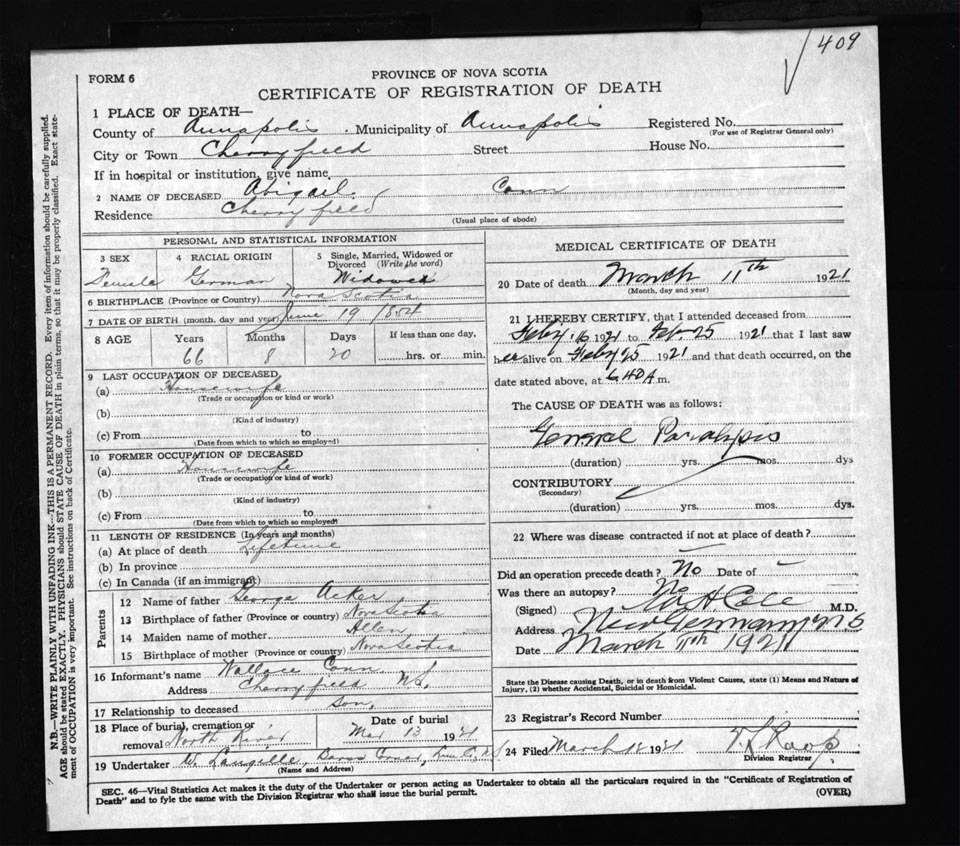 409
FORM 6
PROVINCE OF NOVA SCOTIA
CERTIFICATE OF REGISTRATION OF DEATH
1 PLACE OF DEATH—
County of Annapolis. Municipality of Annapolis Registered No.
(For use of Registrar General only)
City or Town Cherryfield Street House No.
If in hospital or institution, give name
2 NAME OF DECEASED Abigail Conn
Residence Cherryfield
(Usual place of abode)
PERSONAL AND STATISTICAL INFORMATION
3 SEX 4 RACIAL ORIGIN 5 Single, Married, Widowed or Divorced (Write the word)
Female German Widowed
6 BIRTHPLACE (Province or Country) Nova Scotia
7 DATE OF BIRTH (month, day and year) June 19 1854
8 AGE Years Months Days If less than one day,
66 8 20 hrs. or min.
9 LAST OCCUPATION OF DECEASED
(a) Housewife
(Trade or occupation or kind or work)
(b)
(Kind of industry)
(c) From to
(Date from which to which so employed)
10 FORMER OCCUPATION OF DECEASED
(a) Housewife
(Trade or occupation or kind of work)
(b)
(Kind of industry)
(c) From to
(Date from which to which so employed)
11 LENGTH OF RESIDENCE (In years and months)
(a) At place of death Lifetime
(b) In province
(c) In Canada (if an immigrant)
Parents
12 Name of father George Acker
13 Birthplace of father (Province or country) Nova Scotia
14 Maiden name of mother Allen
15 Birthplace of mother (Province or country) Nova Scotia
16 Informant's name Wallace Conn
Address Cherryfield N.S.
17 Relationship to deceased Son,
18 Place of burial, cremation or removal North River Date of burial Mar 13 1921
19 Undertaker W. Langille,
(Name and Address)
MEDICAL CERTIFICATE OF DEATH
20 Date of death March 11th 1921
(Month, day and year)
21 I HEREBY CERTIFY, that I attended deceased from
Feby. 16 1921 to Feb. 25 1921 that I last saw
her alive on Feby 25 1921 and that death occurred, on the
date stated above, at m.
The CAUSE OF DEATH was as follows:
General Paralysis
(duration) yrs. mos. dys
CONTRIBUTORY
(Secondary)
(duration) yrs. mos. dys.
22 Where was disease contracted if not at place of death?
Did an operation precede death? No Date of —
Was there an autopsy? No
(Signed) Cole M.D.
Address New Germany N S
Date March 11th 1921
State the Disease causing Death, or in death from Violent Causes, state (1) Means and Nature of
Injury, (2) whether Accidental, Suicidal or Homicidal.
23 Registrar's Record Number
24 Filed March 18 1921
Division Registrar
SEC. 46—Vital Statistics Act makes it the duty of the Undertaker or person acting as Undertaker to obtain all the particulars required in the "Certificate of Registration of
Death" and to fyle the same with the Division Registrar who shall issue the burial permit. (OVER)
N.B.—WRITE PLAINLY WITH UNFADING INK—THIS IS A PERMANENT RECORD. Every item of information should be carefully supplied.
AGE should be stated EXACTLY. PHYSICIANS should STATE CAUSE OF DEATH in plain terms, so that it may be properly classified. Exact statement of OCCUPATION is very important. See instructions on back of Certificate.